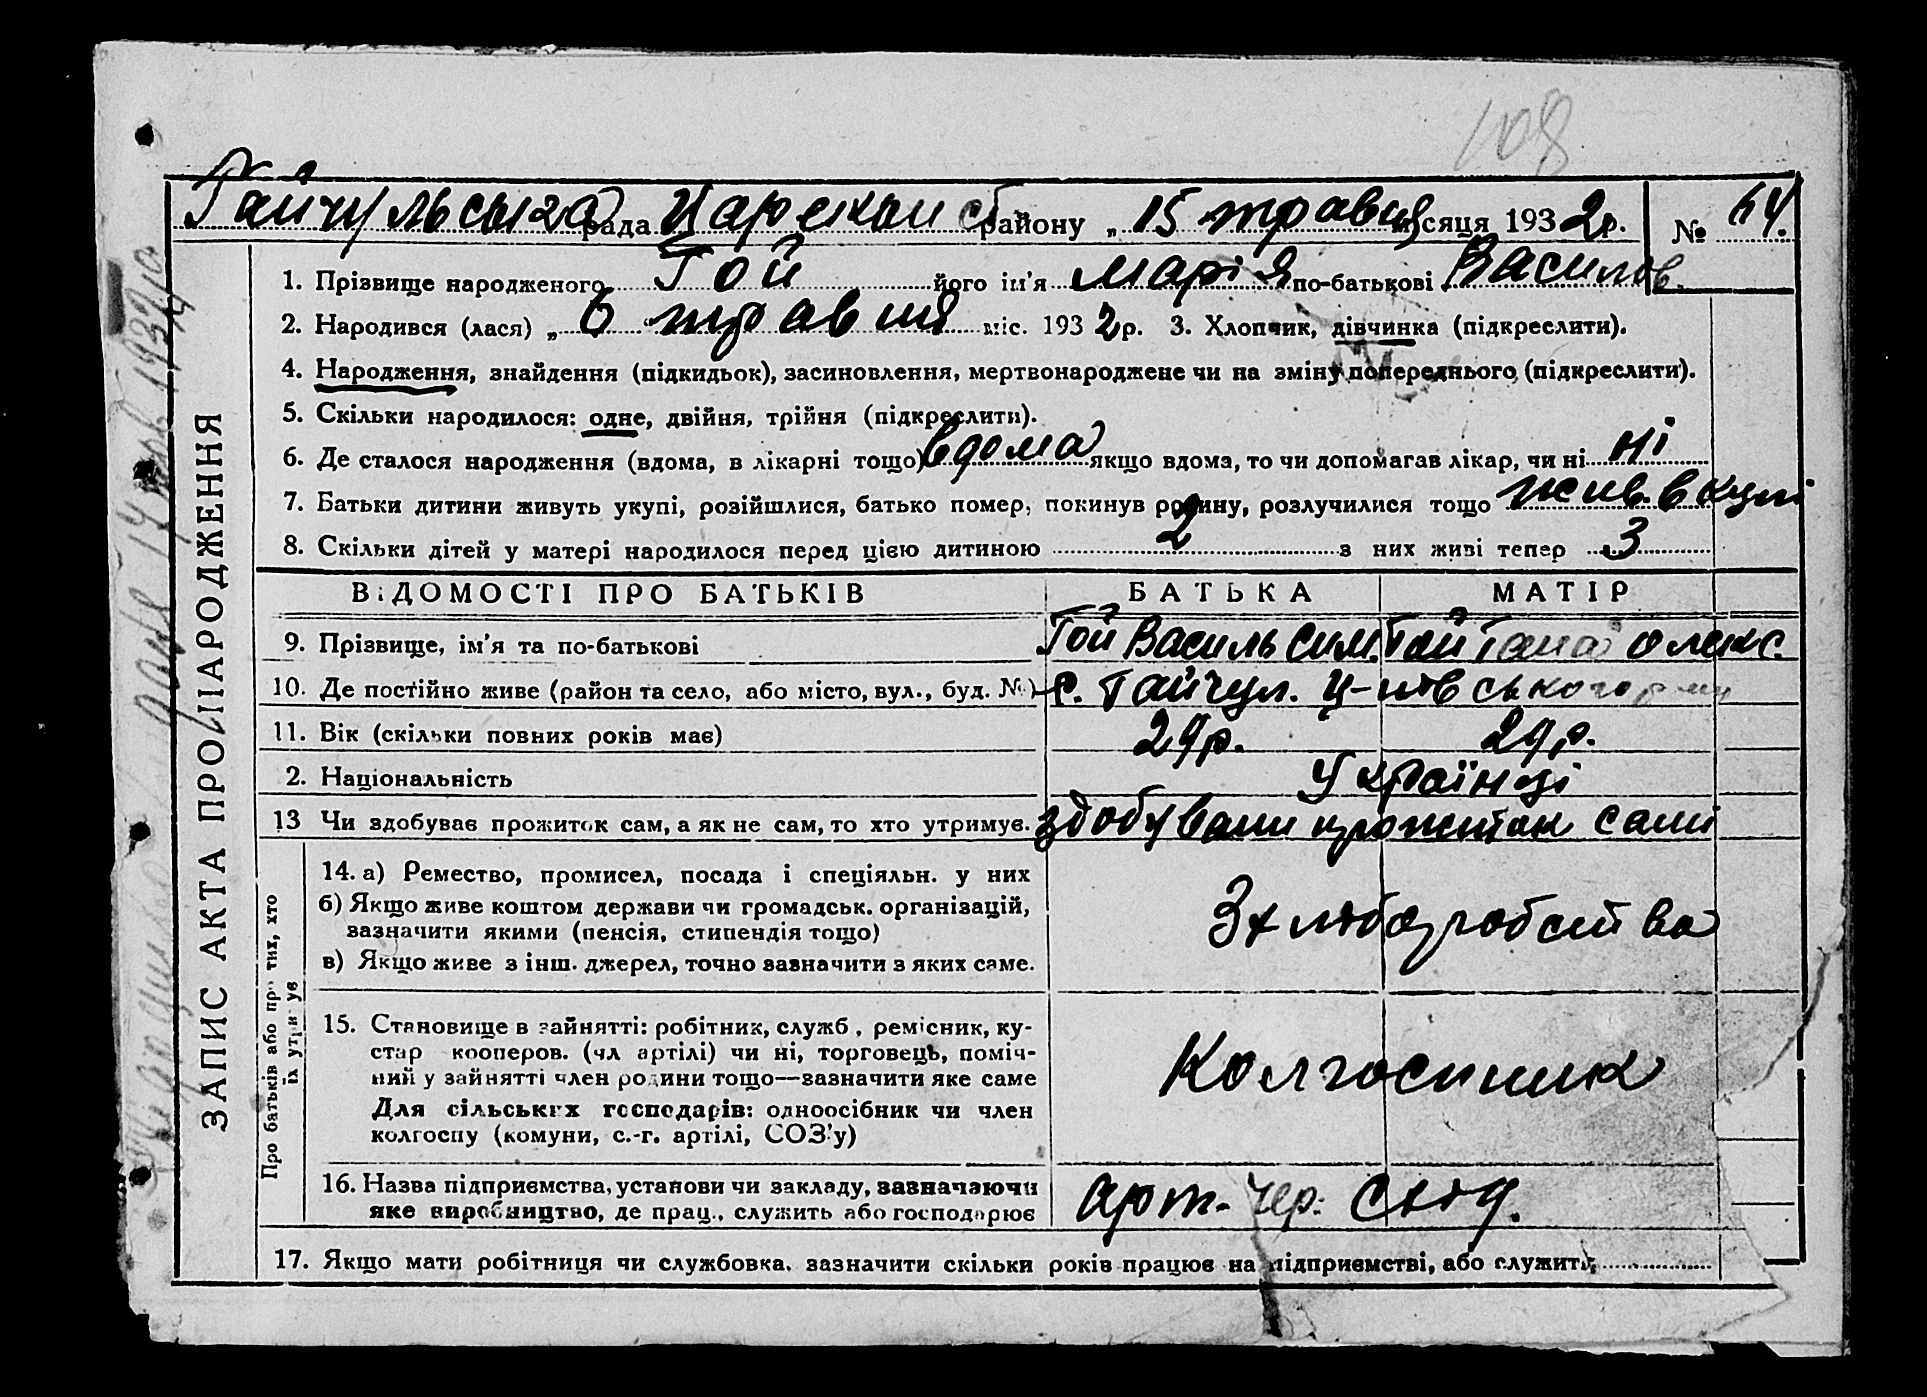 108
Гайчульська рада Царекон району „ 15 травня місяця 1932 р. № 64.
1. Прізвище народженого Гой його ім'я Марія по-батькові Василів.
2. Народився (лася) „ 6 " травня міс. 1932 р. 3. Хлопчик, дівчинка (підкреслити).
4. Народження, знайдення (підкидьок), засиновлення, мертвонароджене чи на зміну попереднього (підкреслити).
5. Скільки народилося: одне, двійня, трійня (підкреслити).
6. Де сталося народження (вдома, в лікарні тощо) вдома якщо вдома, то чи допомагав лікар, чи ні ні
7. Батьки дитини живуть укупі, розійшлися, батько помер, покинув родину, розлучилися тощо жив. вкупі
8. Скільки дітей у матері народилося перед цією дитиною 2 з них живі тепер 3
ВІДОМОСТІ ПРО БАТЬКІВ БАТЬКА МАТІР
9. Прізвище, ім'я та по-батькові Гой Василь Сим. Гой Ганна Олекс.
10. Де постійно живе (район та село, або місто, вул., буд. №) с. Гайчул.
11. Вік (скільки повних років має) 29 р. 29 р.
2. Національність Українці
13 Чи здобуває прожиток сам, а як не сам, то хто утримує. здобували прожиток самі
14. а) Ремество, промисел, посада і спеціяльн. у них
б) Якщо живе коштом держави чи громадськ. організацій,
зазначити якими (пенсія, стипендія тощо)
в) Якщо живе з інш. джерел, точно зазначити з яких саме.
З хліборобства
15. Становище в зайнятті: робітник, служб., ремісник, ку-
стар кооперов. (чл артілі) чи ні, торговець, поміч-
ний у зайнятті член родини тощо—зазначити яке саме
Для сільських господарів: одноосібник чи член
колгоспу (комуни, с.-г. артілі, СОЗ'у)
Колгоспник
16. Назва підприємства, установи чи закладу, зазначаючи
яке виробництво, де прац., служить або господарює
арт. Чер.
17. Якщо мати робітниця чи службовка, зазначити скільки років працює на підприємстві, або служить
ЗАПИС АКТА ПРО НАРОДЖЕННЯ
Про батьків або про тих, хто
їх утримує